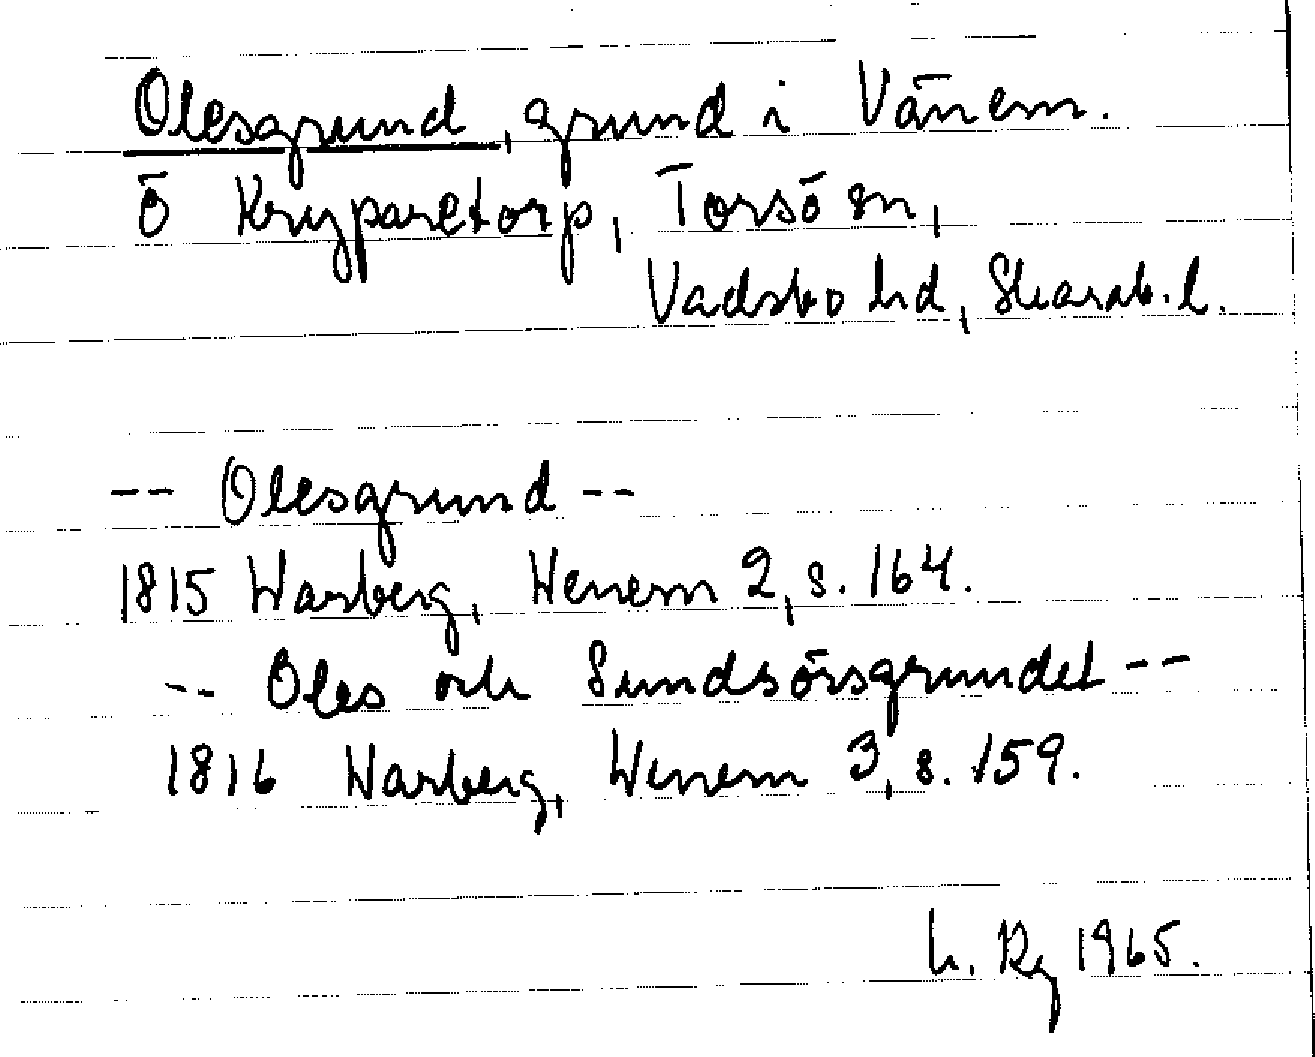 Olesgrund, grund i Vänern.
Ö Kryparetorp, Torsö sn,
Vadsbo hd, Skarab. l.
-- Olesgrund --
1815 Warberg, Wenern 2, s. 164.
-- Oles och Sundsörsgrundet --
1816 Warberg, Wenern 3, s. 159.
h. Rg 1965.